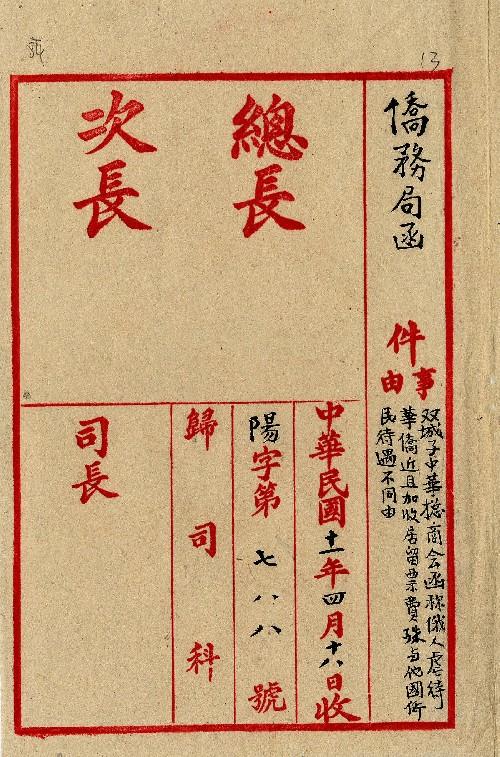 13
僑務局函
件
事由
双城子中華總商会函称俄人虐待
華僑近且加收居留票費殊与他國僑
民待遇不同由
總長
次長
中華民國十一年四月十八日收
陽字第七八八號
歸司科
司長